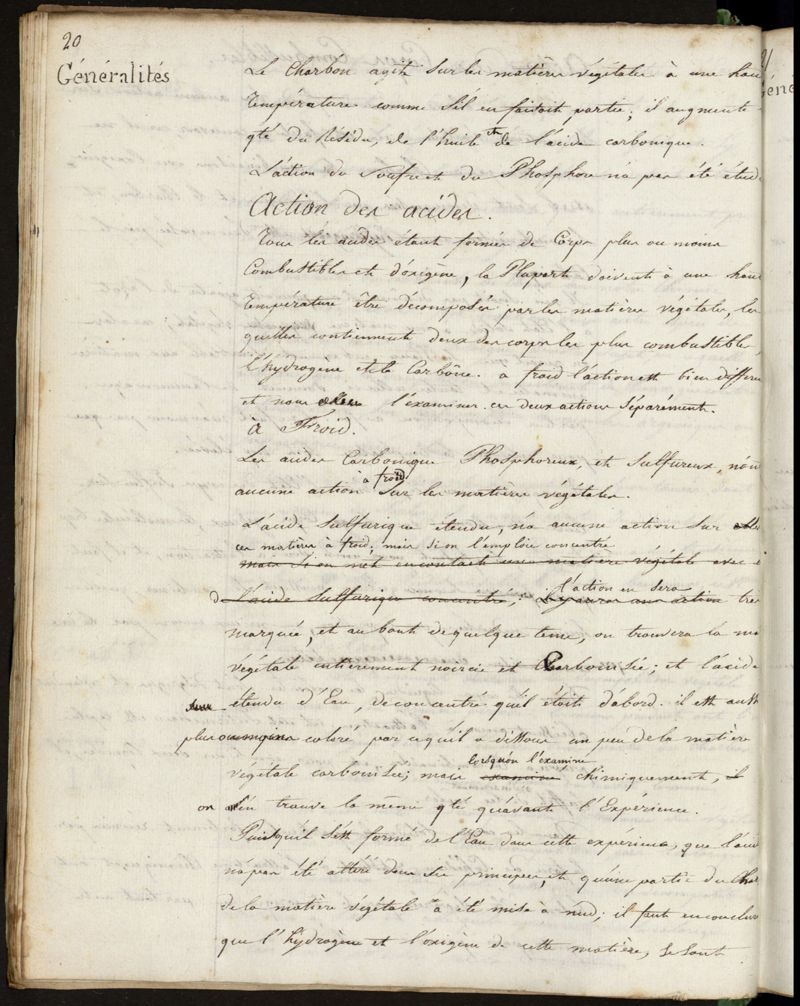 20
Généralités
Le Charbon agit sur les matières végétales à une hau
température comme s'il en faisoit partie; il augmente
qté du Résidu, de l'huile et de l'acide carbonique.
L'action du Soufre et du Phosphore n'a pas été étud
Action des acides.
Tous les acides étant formés de Corps plus ou moins
Combustibles et d'oxigène, la Plupart doivent à une hau
température être décomposés par les matières végétales, les
quelles contiennent deux des corps les plus combustibles
l'hydrogène et le Carbône. à froid l'action est bien différe
et nous allons l'examiner ces deux actions séparément.
à Froid.
Les acides Carbonique Phosphoreux, et Sulfureux, n'on
à froid
aucune action sur les matières végétales.
L'acide Sulfurique étendu, n'a aucune action sur
ces matières à froid; mais si on l'emploie concentré
mais si on met en contact une matière végétale avec
l'action en sera
l'acide sulfurique concentré, il y aura une action trè
marquée, et au bout de quelque tems, on trouvera la ma
végétale entièrement noircie et Carbonisée; et l'acide
étendu d'Eau, de concentré qu'il étoit d'abord. il est aussi
plus ou moins coloré, parcequ'il a dissous un peu de la matière
lorsqu'on l'examine
végétale carbonisée; mais examiné chimiquement, il
on en trouve la même qté qu'avant l'Expérience.
Puisqu'il s'est formé de l'Eau dans cette expérience, que l'aci
n'a pas été altéré dans ses principes, et qu'une partie du Cha
de la matière végétale a été mise à nud; il faut en conclure
que l'hydrogène et l'oxigène de cette matière, se sont
21
Géné